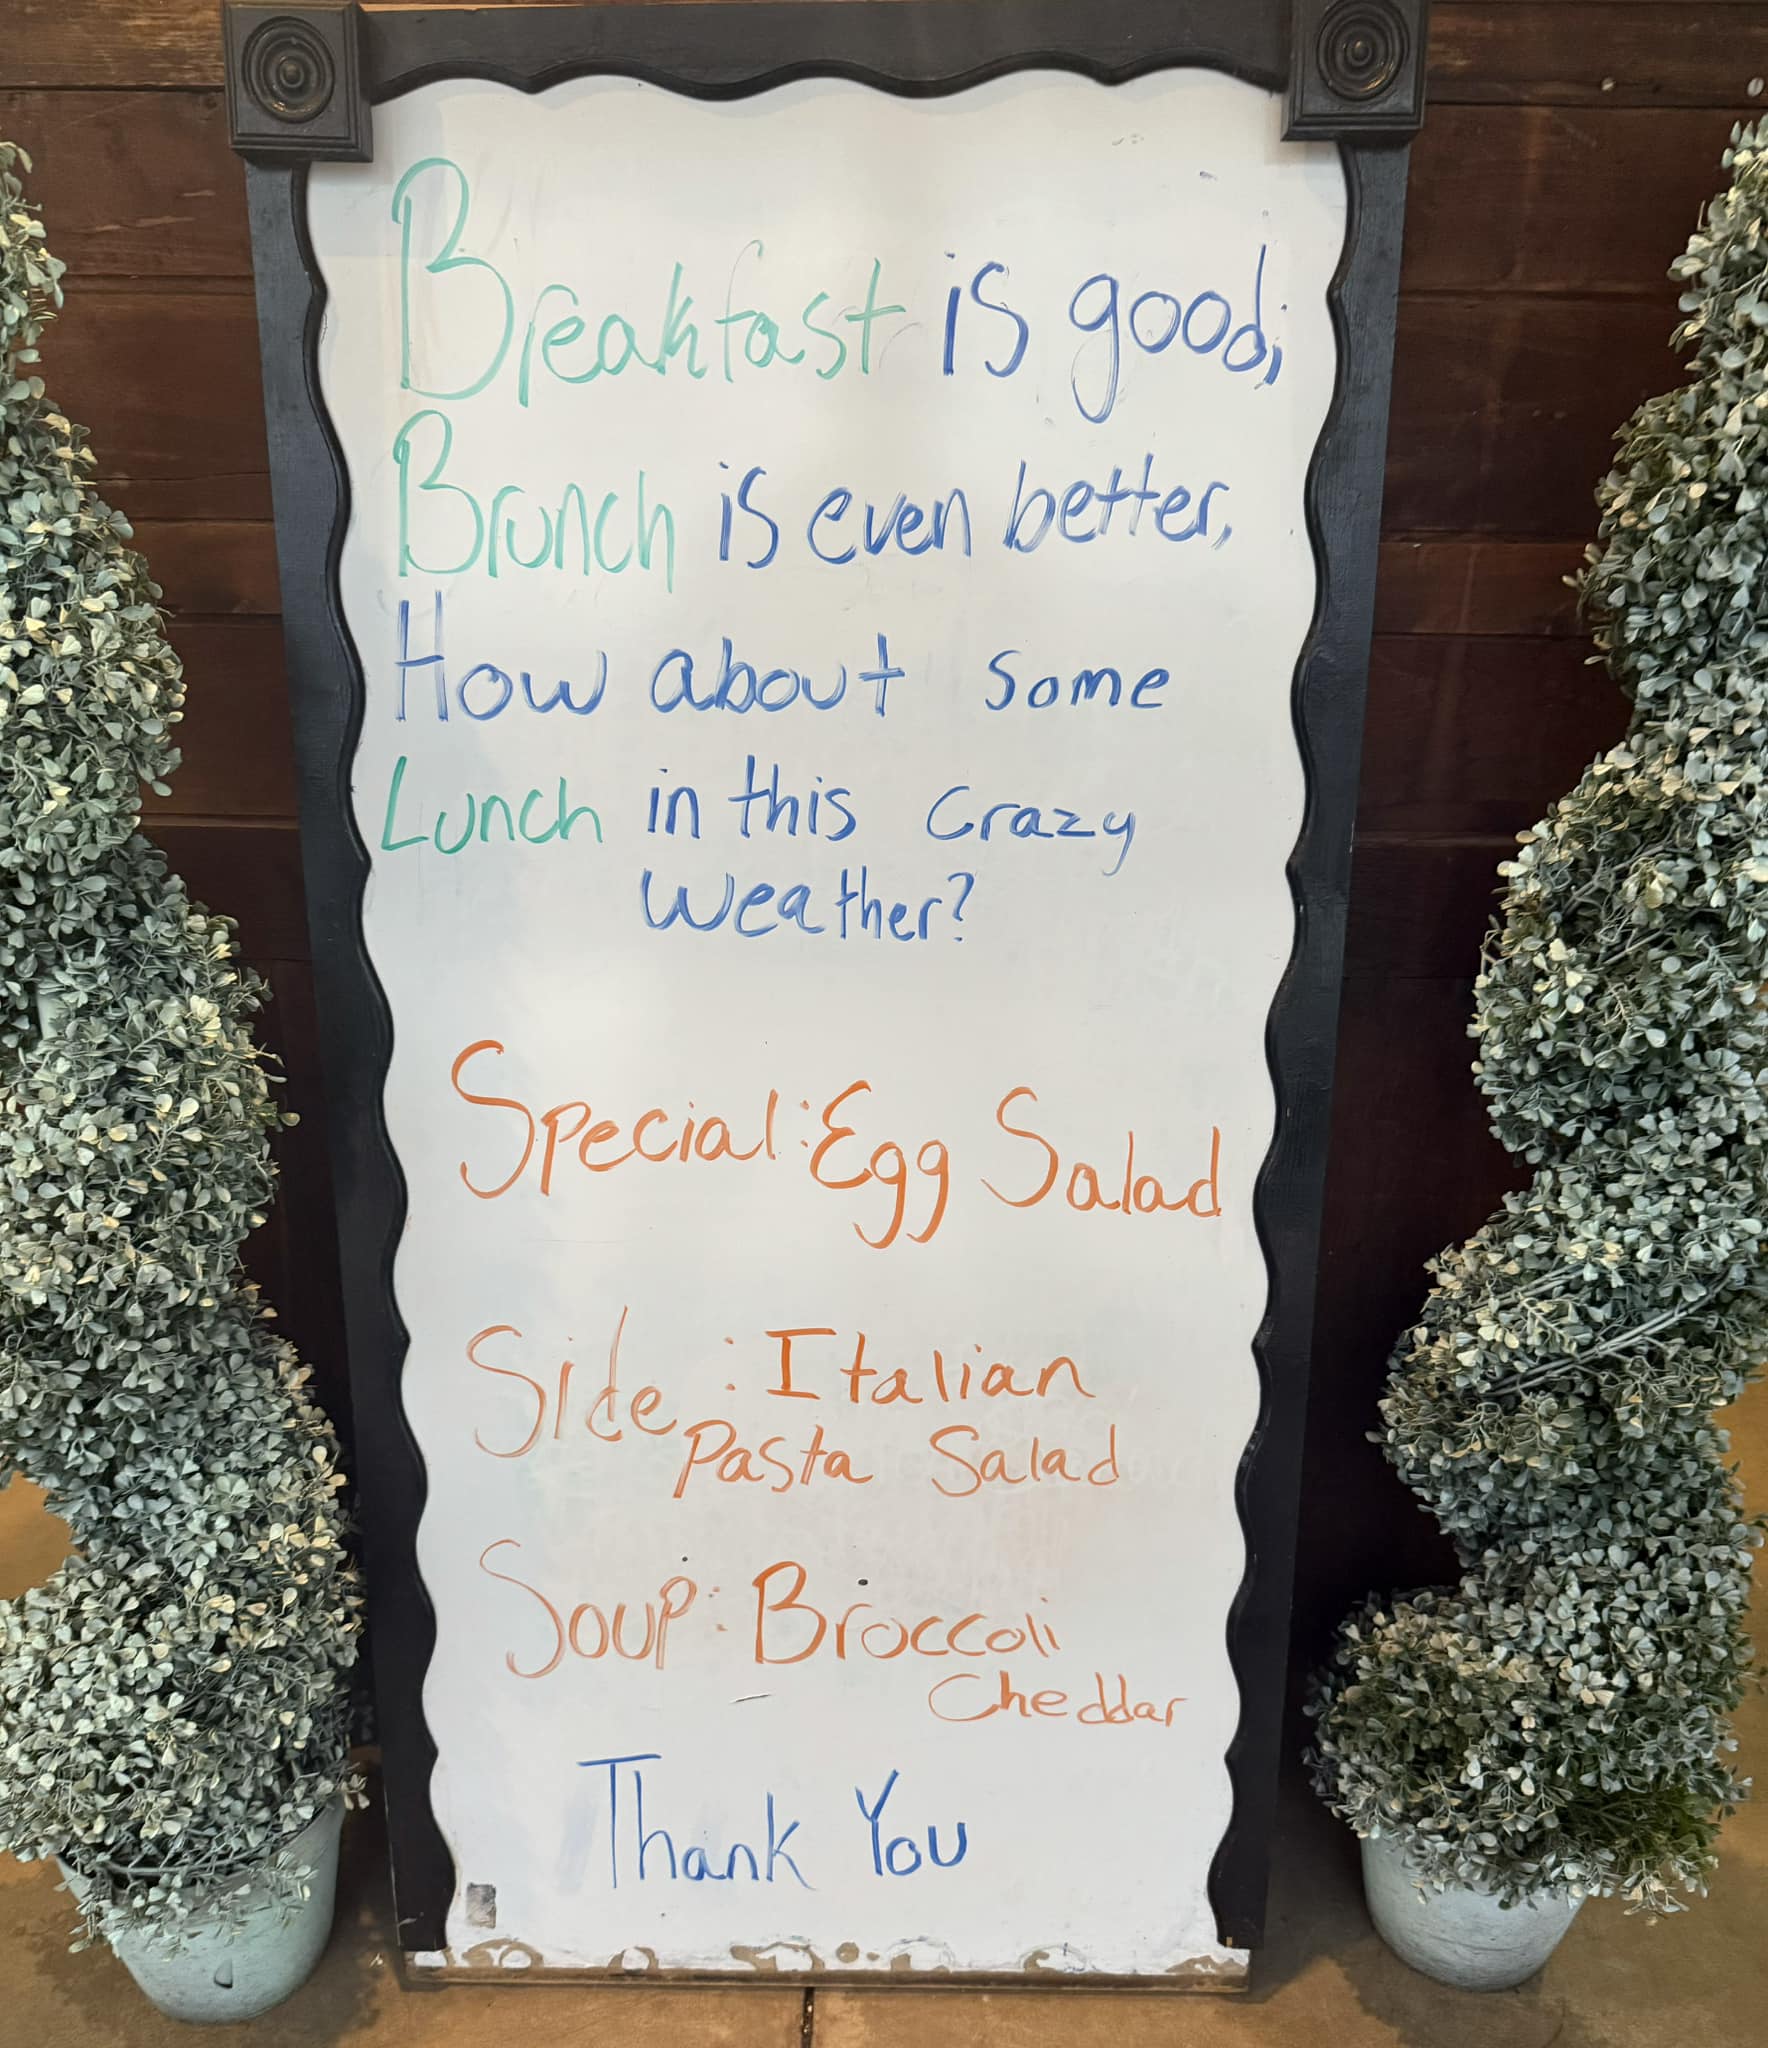 Breakfast is good;
Brunch is even better,
How about some
Lunch in this crazy
weather?
Special: Egg Salad
Side: Italian
Pasta Salad
Soup: Broccoli
Cheddar
Thank You